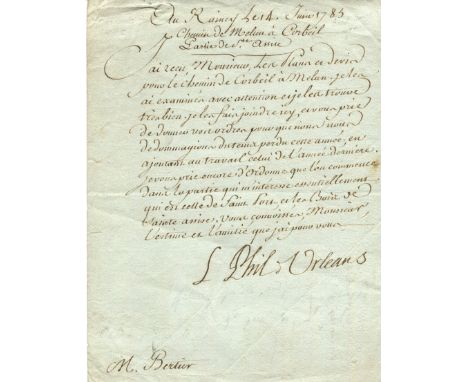 Du Raincy Le 14 Juin 1785
Chemin de Melun à Corbeil
Partie de Ste Assise
J'ai recu Monsieur, Les plans et devis
pour le Chemin de Corbeil à Melun, je les
ai examinés avec attention et je les trouve
très bien. je les fais joindre icy, et vous prie
de donner vos ordres pour que nous nous
dedommagions du tems perdu cette année, en
ajoutant au travail celui de l'année derniere
je vous prie encore d'ordonner que l'on commence
dans la partie qui m'interesse essentiellement
qui est celle de Saint Port, et les Bois de
Sainte assise, vous connoissez, Monsieur,
l'estime et l'amitié que j'ai pour vous
L Phil d'Orleans
M. Bertier